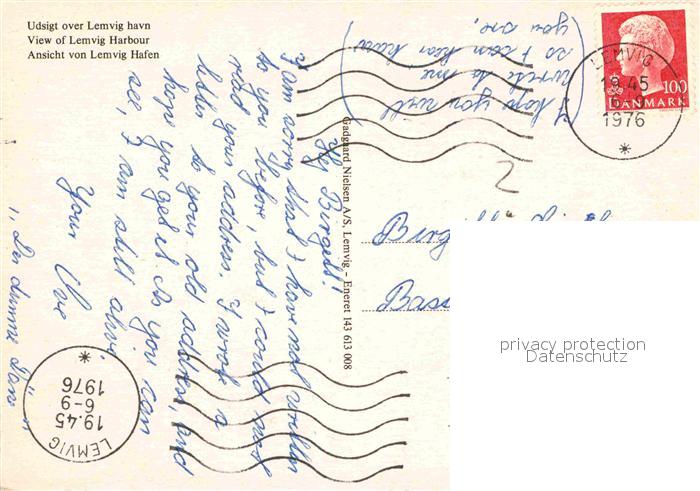 Udsigt over Lemvig havn
View of Lemvig Harbour
Ansicht von Lemvig Hafen
Hej Birgett!
I am sorry that I have not written
to you before, but I could not
read your address. I wrote a
letter to your old address, and
hope you get it. As you can
see, I am still alive.
Your Ove
"Den dumme Dane"
(I hope you will
write to me
so I can hear how
you are)
Gadgaard Nielsen A/S, Lemvig - Eneret 143 613 008
100
DANMARK
LEMVIG
19.45
1976
2
Bass
privacy protection
Datenschutz
LEMVIG
19.45
6-9
1976